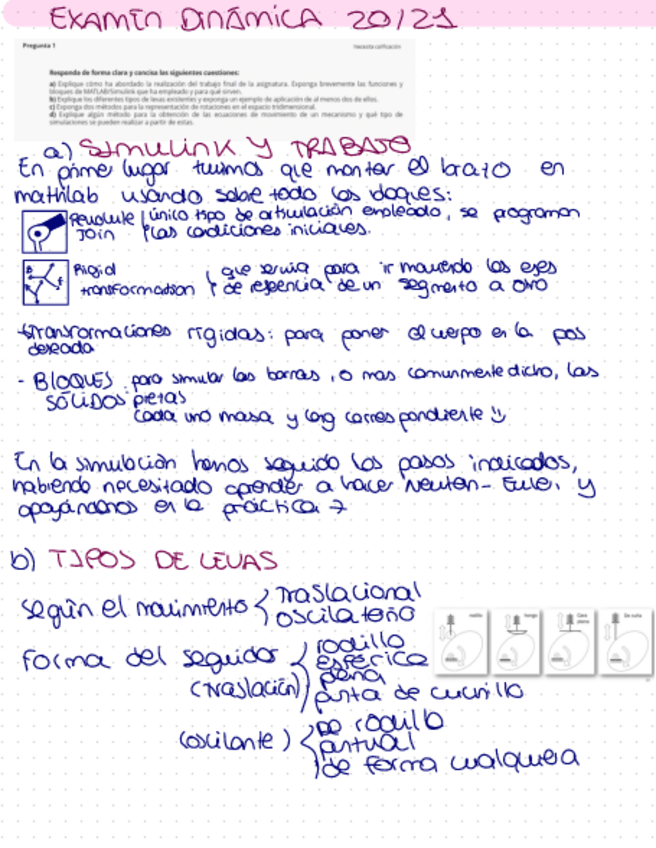 EXAMEN DINÁMICA 20/21
Pregunta 1
Necesita calificación
Responda de forma clara y concisa las siguientes cuestiones:
a) Explique cómo ha abordado la realización del trabajo final de la asignatura. Exponga brevemente las funciones y
bloques de MATLAB/Simulink que ha empleado y para qué sirven.
b) Explique los diferentes tipos de levas existentes y exponga un ejemplo de aplicación de al menos dos de ellos.
c) Exponga dos métodos para la representación de rotaciones en el espacio tridimensional.
d) Explique algún método para la obtención de las ecuaciones de movimiento de un mecanismo y qué tipo de
simulaciones se pueden realizar a partir de estas.
a.) SIMULINK Y TRABAJO
En primer lugar tuvimos que montar el brazo en
mathlab usando sobre todo los bloques:
Revolute único tipo de articulación empleado, se programan
JOIN las condiciones iniciales.
Rigid que servía para ir moviendo los ejes
transformation de referencia de un segmento a otro
Transformaciones rígidas: para poner el cuerpo en la pos
deseada
- BLOQUES para simular las barras, o mas comunmente dicho, las
SÓLIDOS piezas
Cada uno masa y long correspondiente
En la simulación hemos seguido los pasos indicados,
habiendo necesitado aprender a hacer Newton-Euler, y
apoyándonos en la práctica 7
b) TIPOS DE LEVAS
según el movimiento traslacional
oscilatorio
Forma del seguidor rodillo
esférica
(traslación) plana
punta de cuchillo
(oscilante) de rodillo
puntual
de forma cualquiera
rodillo
hongo
Cara
plana
De cuña